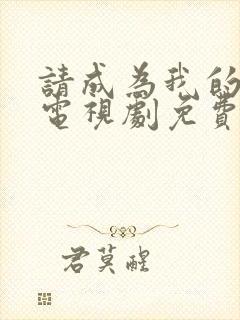 請成為我的
電視劇免費
君莫醒